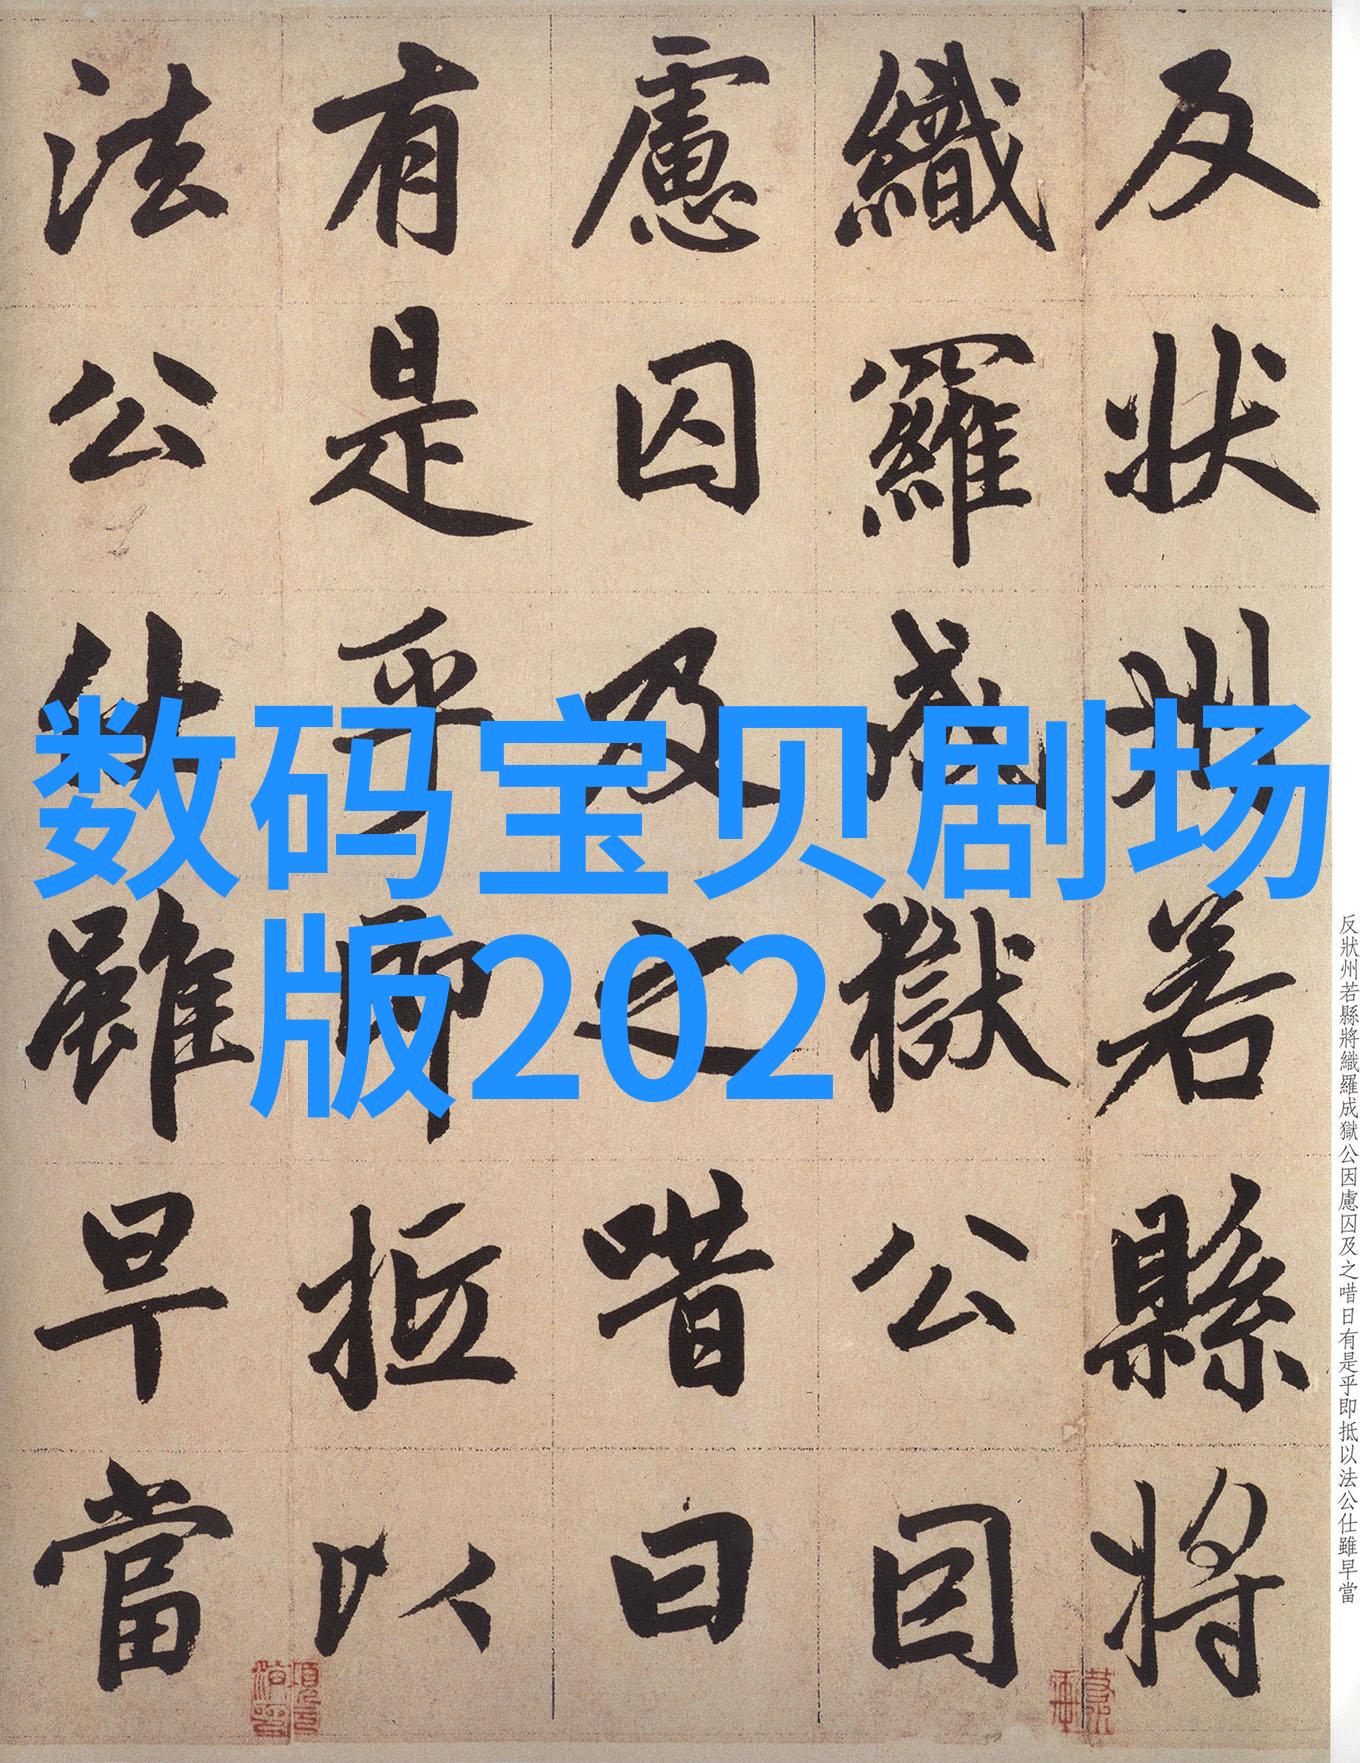 反狀州若縣將
織羅成獄公因
慮囚及之唶曰
有是乎即抵以
法公仕雖早當
数码宝贝剧场
版202
反狀州若縣將織羅成獄公因慮囚及之唶日有是乎即抵以法公仕雖早當